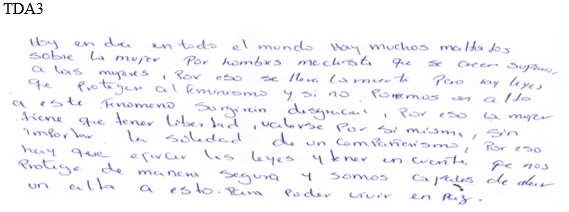 TDA3
Hoy en dia en todo el mundo Hay muchos maltatos
sobre La mujer Por hombres machista que se creen
a las mujeres, Por eso se lleva la muerte Pero hay leyes
qe Protegen al Feminismo y si no Ponemos un alto
a este Fenomeno Surgiran desgracias, Por eso La mujer
tiene que tener Libertad, valerse Por si misma, sin
Importar la soledad de un Compañerismo, Por eso
hay que las leyes y tener en cuenta qe nos
Protege de manera segura y somos capales de dar
un alta a esto. Para Poder vivir en Paz.